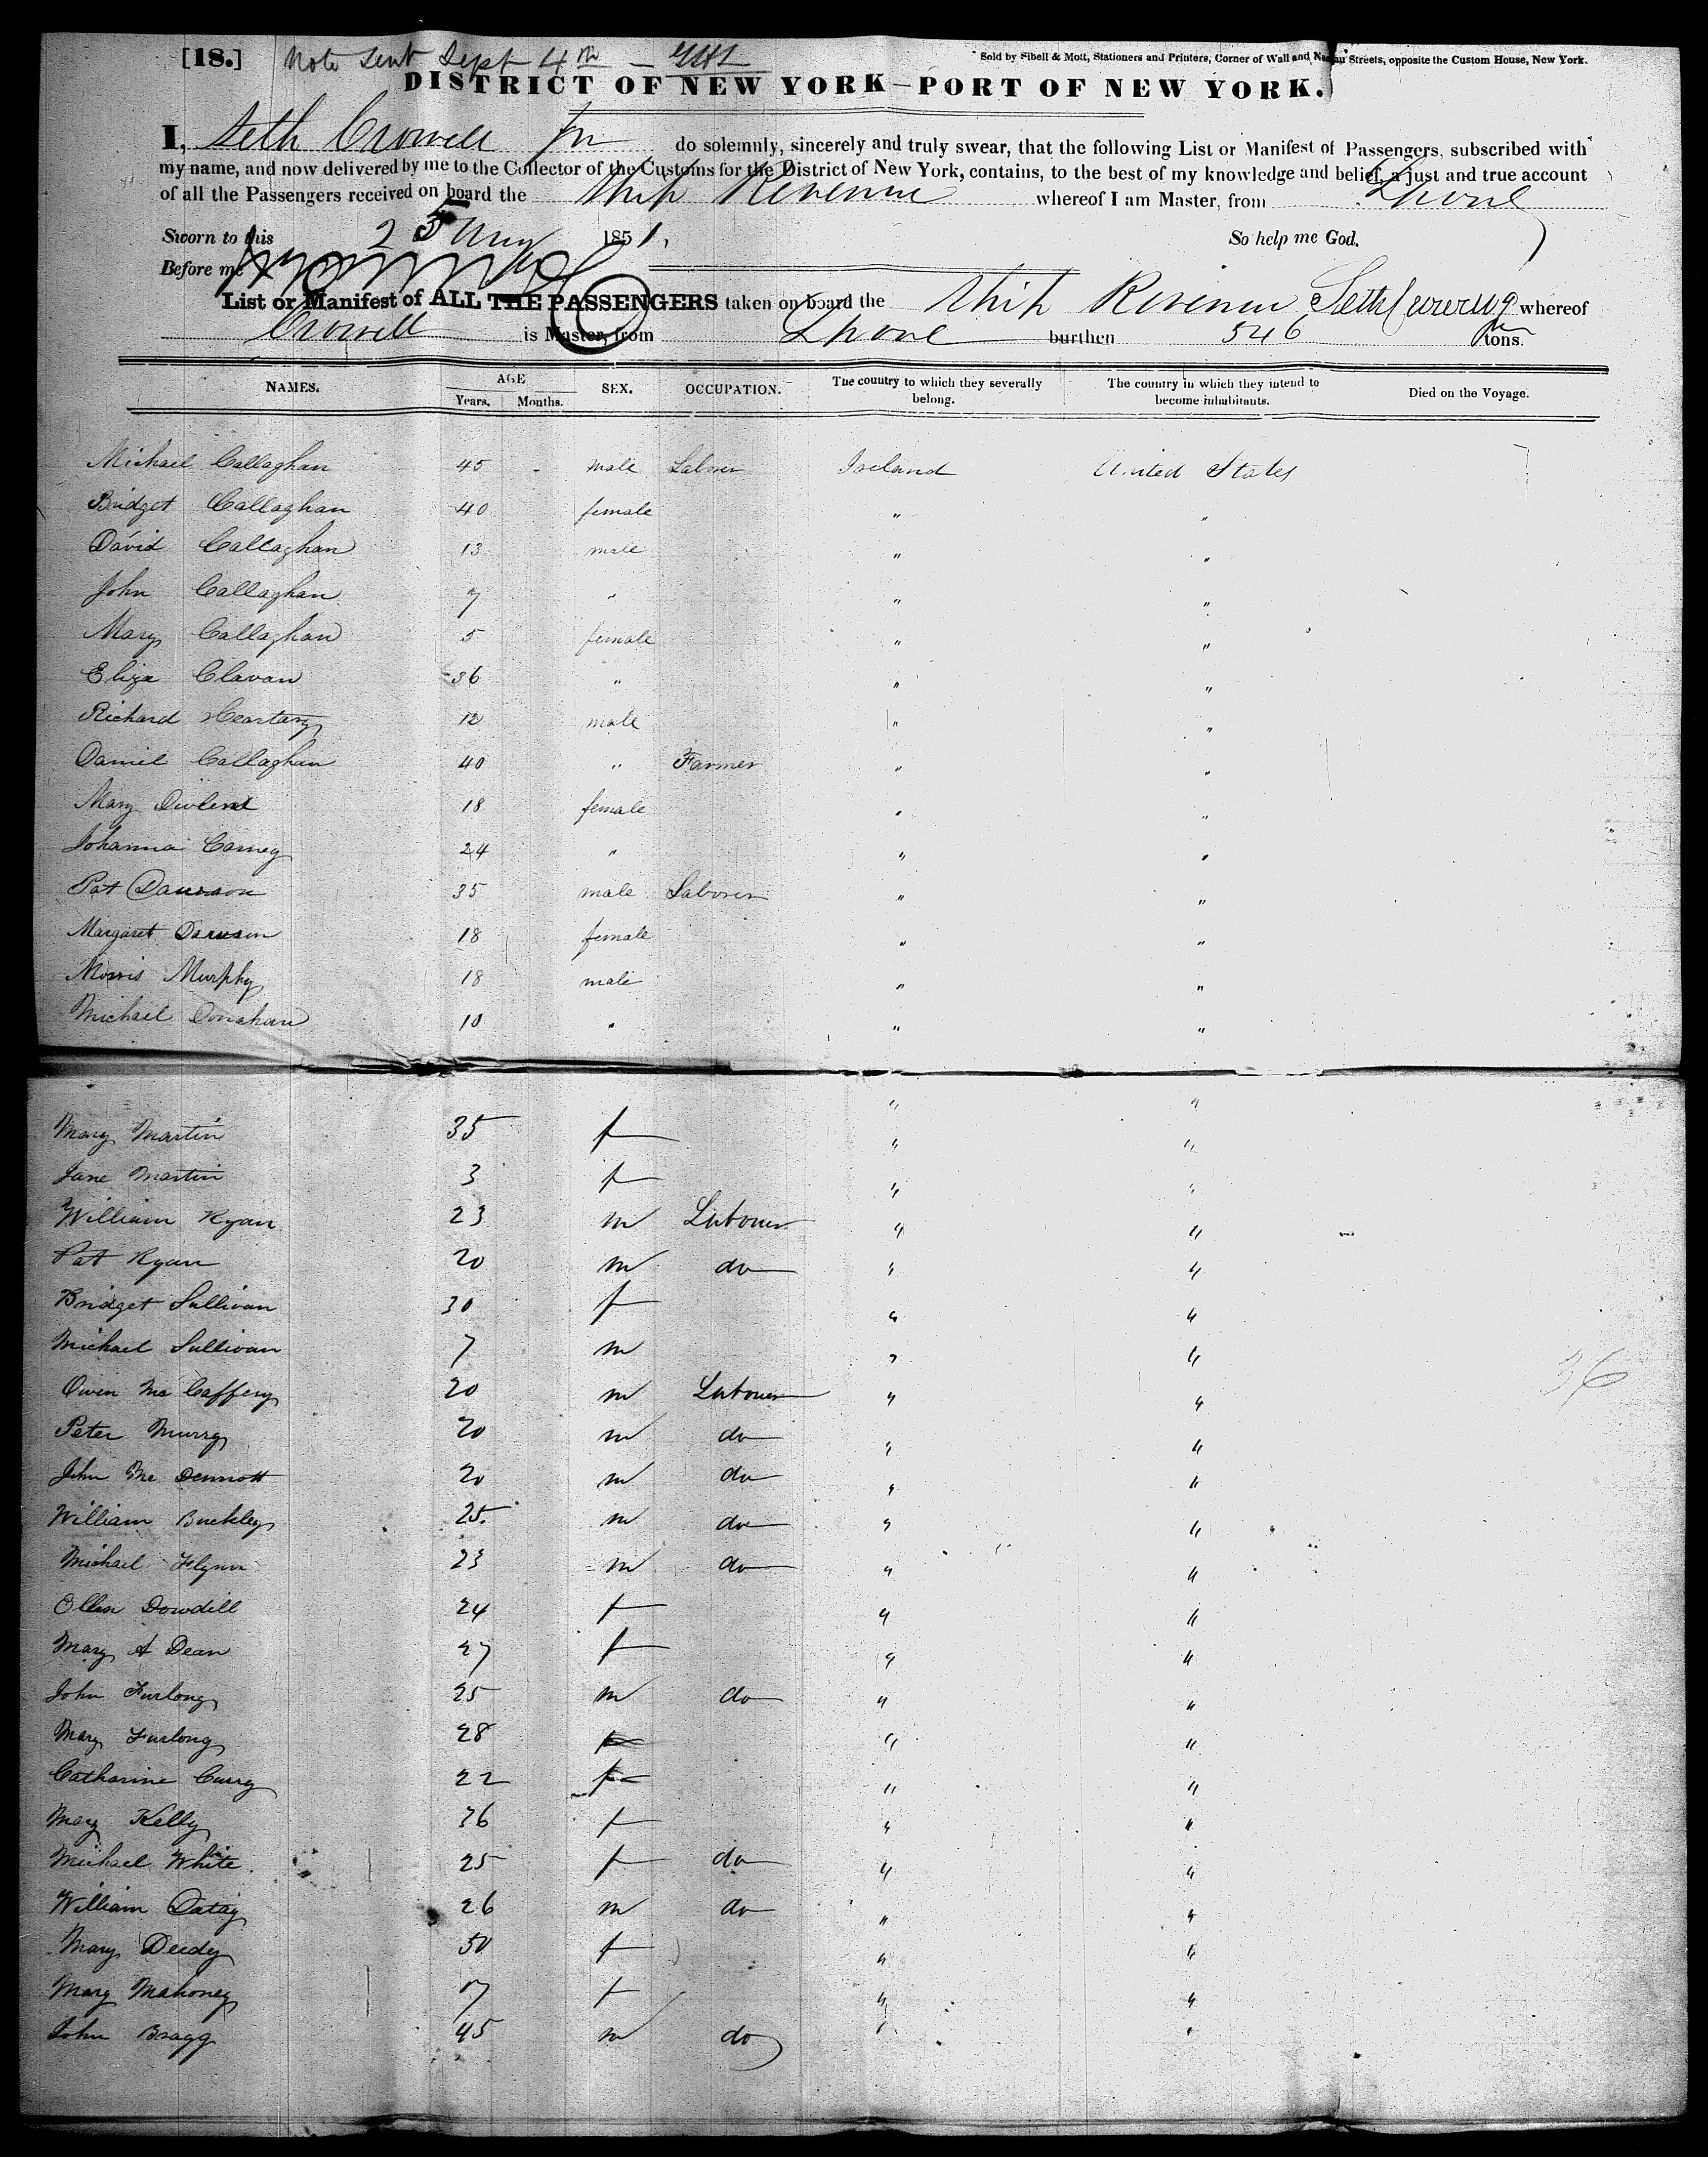 [18.] Note Sent Sept 4th
Sold by Sibell & Mott, Stationers and Printers, Corner of Wall and Nassau Streets, opposite the Custom House, New York.
DISTRICT OF NEW YORK—PORT OF NEW YORK.
I, Seth Crowell Jr do solemnly, sincerely and truly swear, that the following List or Manifest of Passengers, subscribed with
my name, and now delivered by me to the Collector of the Customs for the District of New York, contains, to the best of my knowledge and belief, a just and true account
of all the Passengers received on board the Ship Revenue whereof I am Master, from Lpool
Sworn to this 25 Aug 1851. So help me God.
Before me
List or Manifest of ALL THE PASSENGERS taken on board the Ship Revenue Seth whereof
Crowell is Master, from Lpool burthen 546 tons.
NAMES. AGE SEX. OCCUPATION. The country to which they severally belong. The country in which they intend to become inhabitants. Died on the Voyage.
Years. Months.
Michael Callaghan 45 - male Labour Ireland United States
Bridget Callaghan 40 female " "
David Callaghan 13 male " "
John Callaghan 7 " " "
Mary Callaghan 5 female " "
Eliza Clavan 36 " " "
Richard Heartary 12 male " "
Daniel Callaghan 40 " Farmer " "
Mary 18 female " "
Johanna Carney 24 " " "
Pat Dawson 35 male Laborer " "
Margaret Dawson 18 female " "
Morris Murphy 18 male " "
Michael Donahan 10 " " "
" "
Mary Martin 35 f " "
Jane Martin 3 f " "
William Ryan 23 m Labourer " "
Pat Ryan 20 m do " "
Bridget Sullivan 30 f " "
Michael Sullivan 7 m " "
Owen Mc Caffery 20 m Labourer " "
Peter Murry 20 m do " "
John Mc Dermott 20 m do " "
William Buckley 25. m do " "
Michael Flynn 23 m do " "
Ollen Dowdill 24 f " "
Mary A Dean 27 f " "
John Furlong 25 m do " "
Mary Furlong 28 f " "
Catharine Curry 22 f " "
Mary Kelly 36 f " "
Michael White 25 f do " "
William Datay 26 m do " "
Mary Deedy 50 f " "
Mary Mahoney 17 f " "
John Bragg 45 m do " "
36